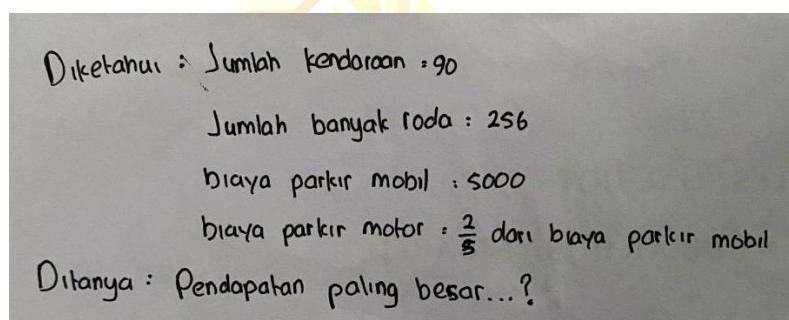 Diketahui : Jumlah kendaraan : 90
Jumlah banyak roda : 256
biaya parkir mobil : 5000
biaya parkir motor : 2/5 dari biaya parkir mobil
Ditanya : Pendapatan paling besar...?